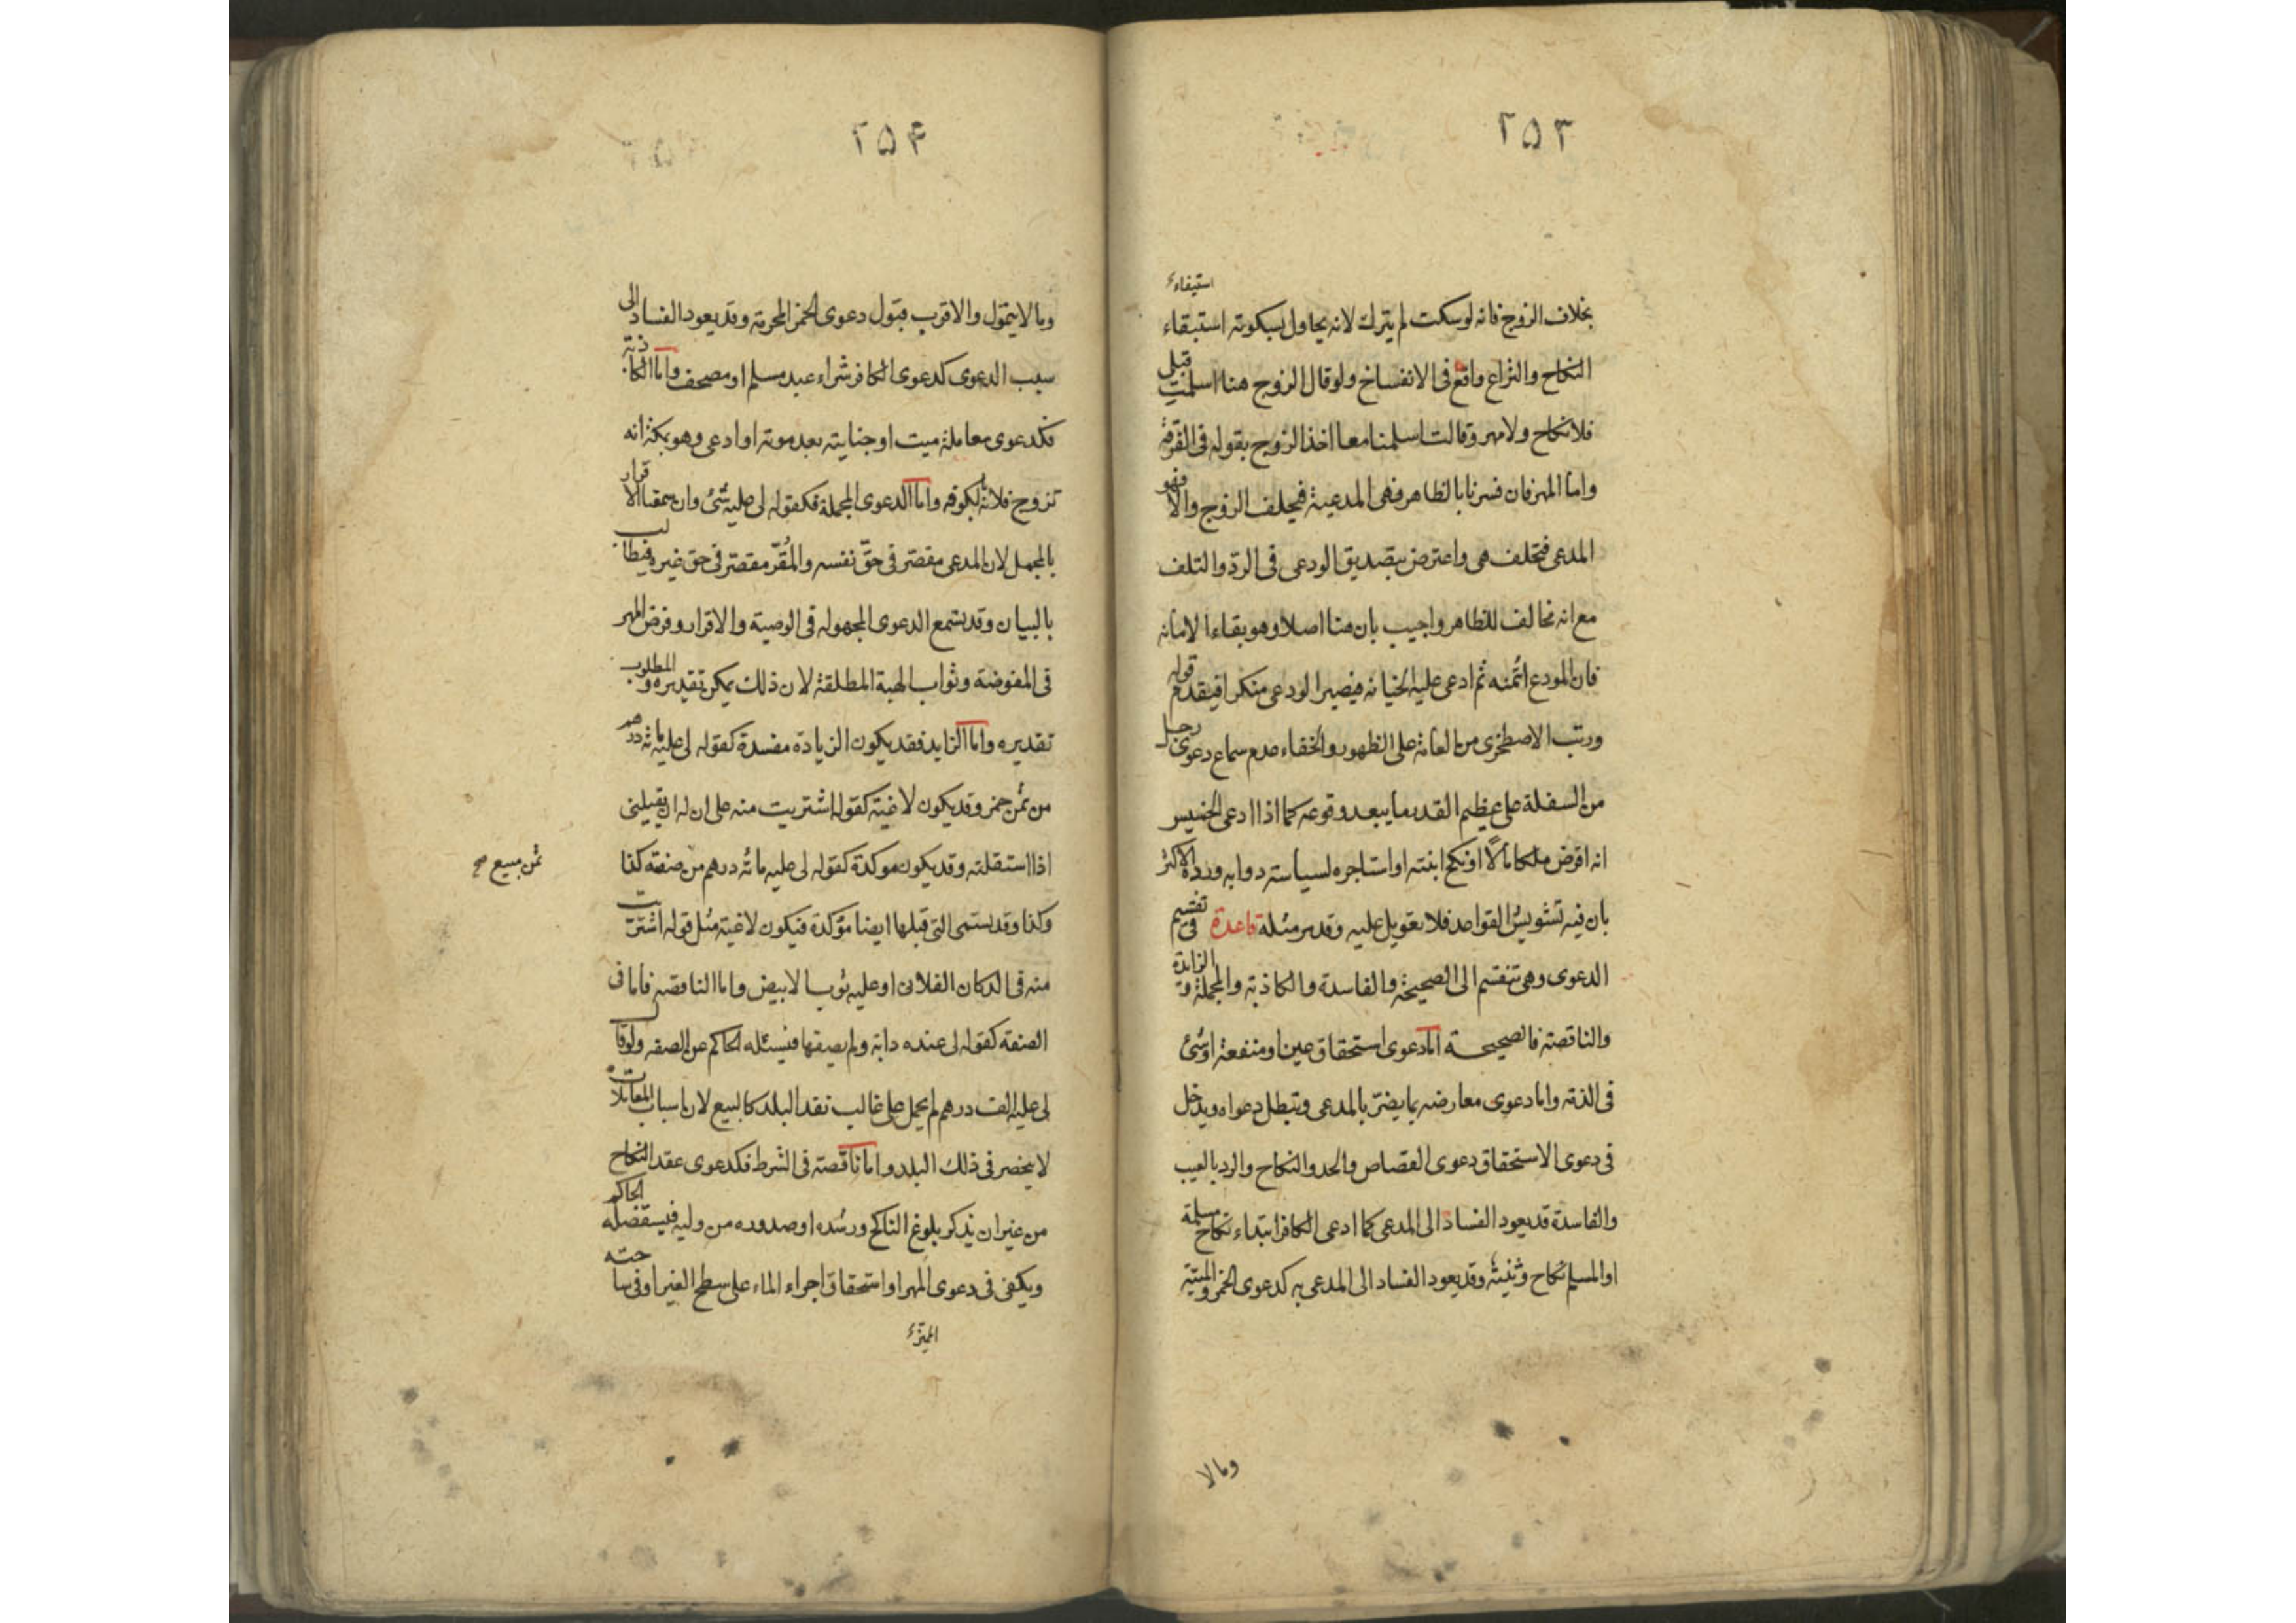 ٢٥٣
استيفاء
بخلاف الزوج فانه لوسكت لم يترك لانه يحاول بسكوته استبقاء
النكاح والنزاع واقع فى الانفساخ ولوقال الزوج هنا اسلمت قبلى
فلا نكاح ولا مهر وقالت اسلمنا معا اخذ الزوج بقوله فى الفرقة
واما المهر فان فسرنا بالظاهر فهى المدعية فيحلف الزوج والا فهو
المدعى فتحلف هى واعترض بتصديق الودعى فى الرد والتلف
مع انه مخالف للظاهر واجيب بان هنا اصلا وهو بقاء الامانه
فان المودع ائتمنه ثم ادعى عليه الخيانه فيصير الودعى منكرا فيقدم قوله
ورتب الاصطخرى من العامة على الظهور والخفاء عدم سماع دعوى رجل
من السفلة على عظيم القدر ما يبعد وقوعه كما اذا ادعى الخسيس
انه اقرض ملكا مالًا او نكح ابنته او استاجره لسياسته دوابه ورده الاكثر
بان فيه تشويش القواعد فلا تعويل عليه وقد مر مثله قاعدة فى تقسيم
الدعوى وهى تنقسم الى الصحيحة والفاسدة والكاذبة والمجملة و الزايدة
والناقصة فالصحيحة اما دعوى استحقاق عين او منفعة او شئ
فى الذمة واما دعوى معارضه بما يضر بالمدعى وتبطل دعواه ويدخل
فى دعوى الاستحقاق دعوى القصاص والحد والنكاح والرد بالعيب
والفاسدة قد يعود الفساد الى المدعى كما ادعى الكافر ابتداء نكاح مسلمة
او المسلم نكاح وثنية وقد يعود الفساد الى المدعى به كدعوى الخمر والميتة
وما لا
٢٥۴
وما لا يتمول والاقرب قبول دعوى الخمر المحرمة وقد يعود الفساد الى
سبب الدعوى كدعوى الكافر شراء عبد مسلم او مصحف واما الكاذبة
فكدعوى معاملة ميت او جنايته بعد موته او ادعى وهو بمكة انه
تزوج فلانة بالكوفه واما الدعوى المجملة فكقوله لى عليه شئ وان سمعنا الاقرار
بالمجمل لان المدعى مقصر فى حقّ نفسه والمُقرّ مقصّر فى حق غيره فيطالب
بالبيان وقد تسمع الدعوى المجهوله فى الوصية والاقرار وفرض المهر
فى المفوضة وثواب الهبة المطلقة لان ذلك يمكن تقديره والمطلوب
تقديره واما الزايد فقد يكون الزيادة مفسدة كقوله لى عليه مائة درهم
من ثمن خمر وقد يكون لاغية كقوله اشتريت منه على ان له ان يقيلنى
اذا استقلته وقد يكون موكدة كقوله لى عليه مائه درهم من صنعه كذا
ثمن مبيع صح
وكذا وقد تسمى التى قبلها ايضا مؤكدة فيكون لاغية مثل قوله اشتريت
منه فى الدكان الفلانى او عليه ثوب الابيض واما الناقصه فاما فى
الصفة كقوله لى عنده دابة ولم يصفها فيسئله الحاكم عن الصفه ولو قال
لى عليه الف درهم لم يحمل على غالب نقد البلد كالبيع لان اسباب المعاملات
لا ينحصر فى ذلك البلد واما ناقصة فى الشرط فكدعوى عقد النكاح
من غير ان يذكر بلوغ الناكح ورشده او صدوره من وليه فيستفصله الحاكم
ويكفى فى دعوى المهر او استحقاق اجراء الماء على سطح الغير او فى ساحته